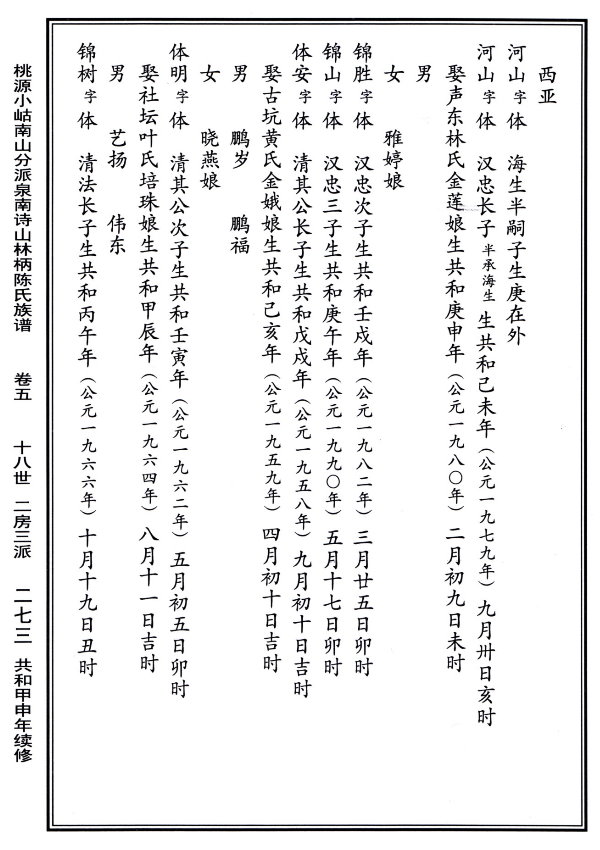 西亚
河山字体 海生半嗣子生庚在外
河山字体 汉忠长子半承海生生共和己未年（公元一九七九年）九月卅日亥时
娶声东林氏金莲娘生共和庚申年（公元一九八〇年）二月初九日未时
男
女 雅婷娘
锦胜字体 汉忠次子生共和壬戌年（公元一九八二年）三月廿五日卯时
锦山字体 汉忠三子生共和庚午年（公元一九九〇年）五月十七日卯时
体安字体 清其公长子生共和戊戌年（公元一九五八年）九月初十日吉时
娶古坑黄氏金娥娘生共和己亥年（公元一九五九年）四月初十日吉时
男 鹏岁 鹏福
女 晓燕娘
体明字体 清其公次子生共和壬寅年（公元一九六二年）五月初五日卯时
娶社坛叶氏培珠娘生共和甲辰年（公元一九六四年）八月十一日吉时
男 艺扬 伟东
锦树字体 清法长子生共和丙午年（公元一九六六年）十月十九日丑时
桃源小岵南山分派泉南诗山林柄陈氏族谱 卷五 十八世 二房三派 二七三 共和甲申年续修